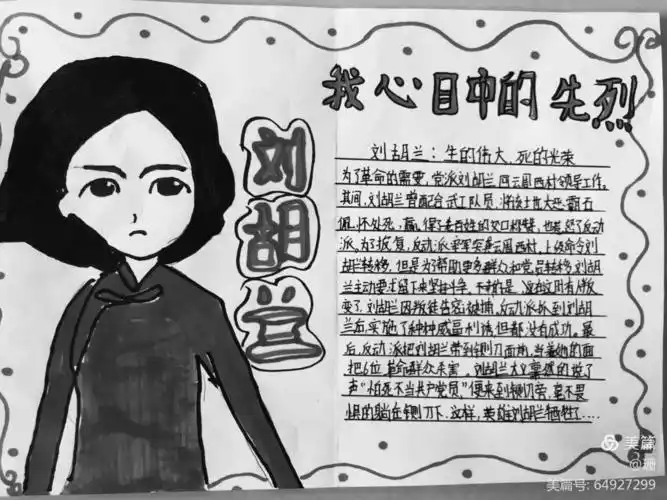 我心目中的先烈
刘胡兰
刘胡兰：生的伟大，死的光荣
为了革命的需要，党派刘胡兰回云周西村领导工作。
其间，刘胡兰曾配合武工队员，将当地大恶霸石
佩怀处死，赢得了老百姓的交口称赞，也惹怒了反动
派。为了报复，反动派要军突袭云周西村，上级命令刘
胡兰转移，但是为了帮助更多群众和党员转移，刘胡
兰主动要求留下来坚持斗争。不幸的是，没想这时有人叛
变了，刘胡兰因叛徒告密被捕，反动派抓到刘胡
兰后，实施了种种威逼利诱，但都没有成功。最
后，反动派把刘胡兰带到铡刀面前，当着她的面
把6位革命群众杀害，刘胡兰大义凛然的说了
声“怕死不当共产党员。”便来到铡刀旁，毫不畏
惧的躺在铡刀下，这样，英雄刘胡兰牺牲了....
美篇
@珊
美篇号: 64927299